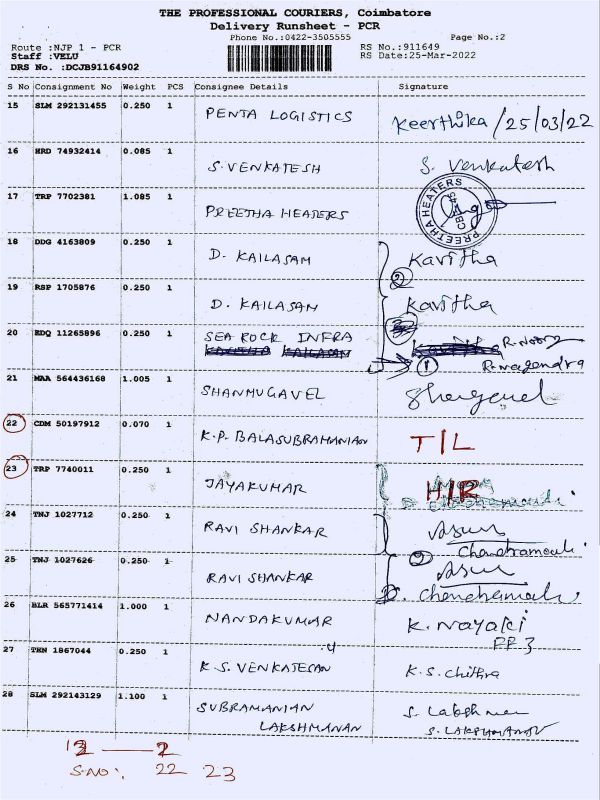 THE PROFESSIONAL COURIERS, Coimbatore
Delivery Runsheet - PCR
Phone No.:0422-3505555 Page No.:2
Route :NJP 1 - PCR RS No.:911649
Staff :VELU RS Date:25-Mar-2022
DRS No. :DCJB91164902
S No Consignment No Weight PCS Consignee Details Signature
15 SLM 292131455 0.250 1 PENTA LOGISTICS Keerthika / 25/03/22
16 HRD 74932414 0.085 1 S.VENKATESH S. Venkatesh
17 TRP 7702381 1.085 1 PREETHA HEATERS PREETHA HEATERS CBE
18 DDG 4163809 0.250 1 D. KAILASAM Kavitha
②
19 RSP 1705876 0.250 1 D. KAILASAM Kavitha
20 EDQ 11265896 0.250 1 SEA ROCK INFRA
① R. Nagendra
21 MAA 564436168 1.005 1 SHANMUGAVEL
22 CDM 50197912 0.070 1 K.P. BALASUBRAMANIAN T/L
23 TRP 7740011 0.250 1 JAYAKUMAR H/R
24 TMJ 1027712 0.250 1 RAVI SHANKAR
② Chandramouli
25 TMJ 1027626 0.250 1 RAVI SHANKAR
Chandramouli
26 BLR 565771414 1.000 1 NANDAKUMAR K. Nayaki
FF 3
27 THN 1867044 0.250 1 K.S. VENKATESAN K.S. Chithra
28 SLM 292143129 1.100 1 SUBRAMANIAN S. Lakshman
LAKSHMANAN S. LAKSHMANAN
S.NO: 22 23